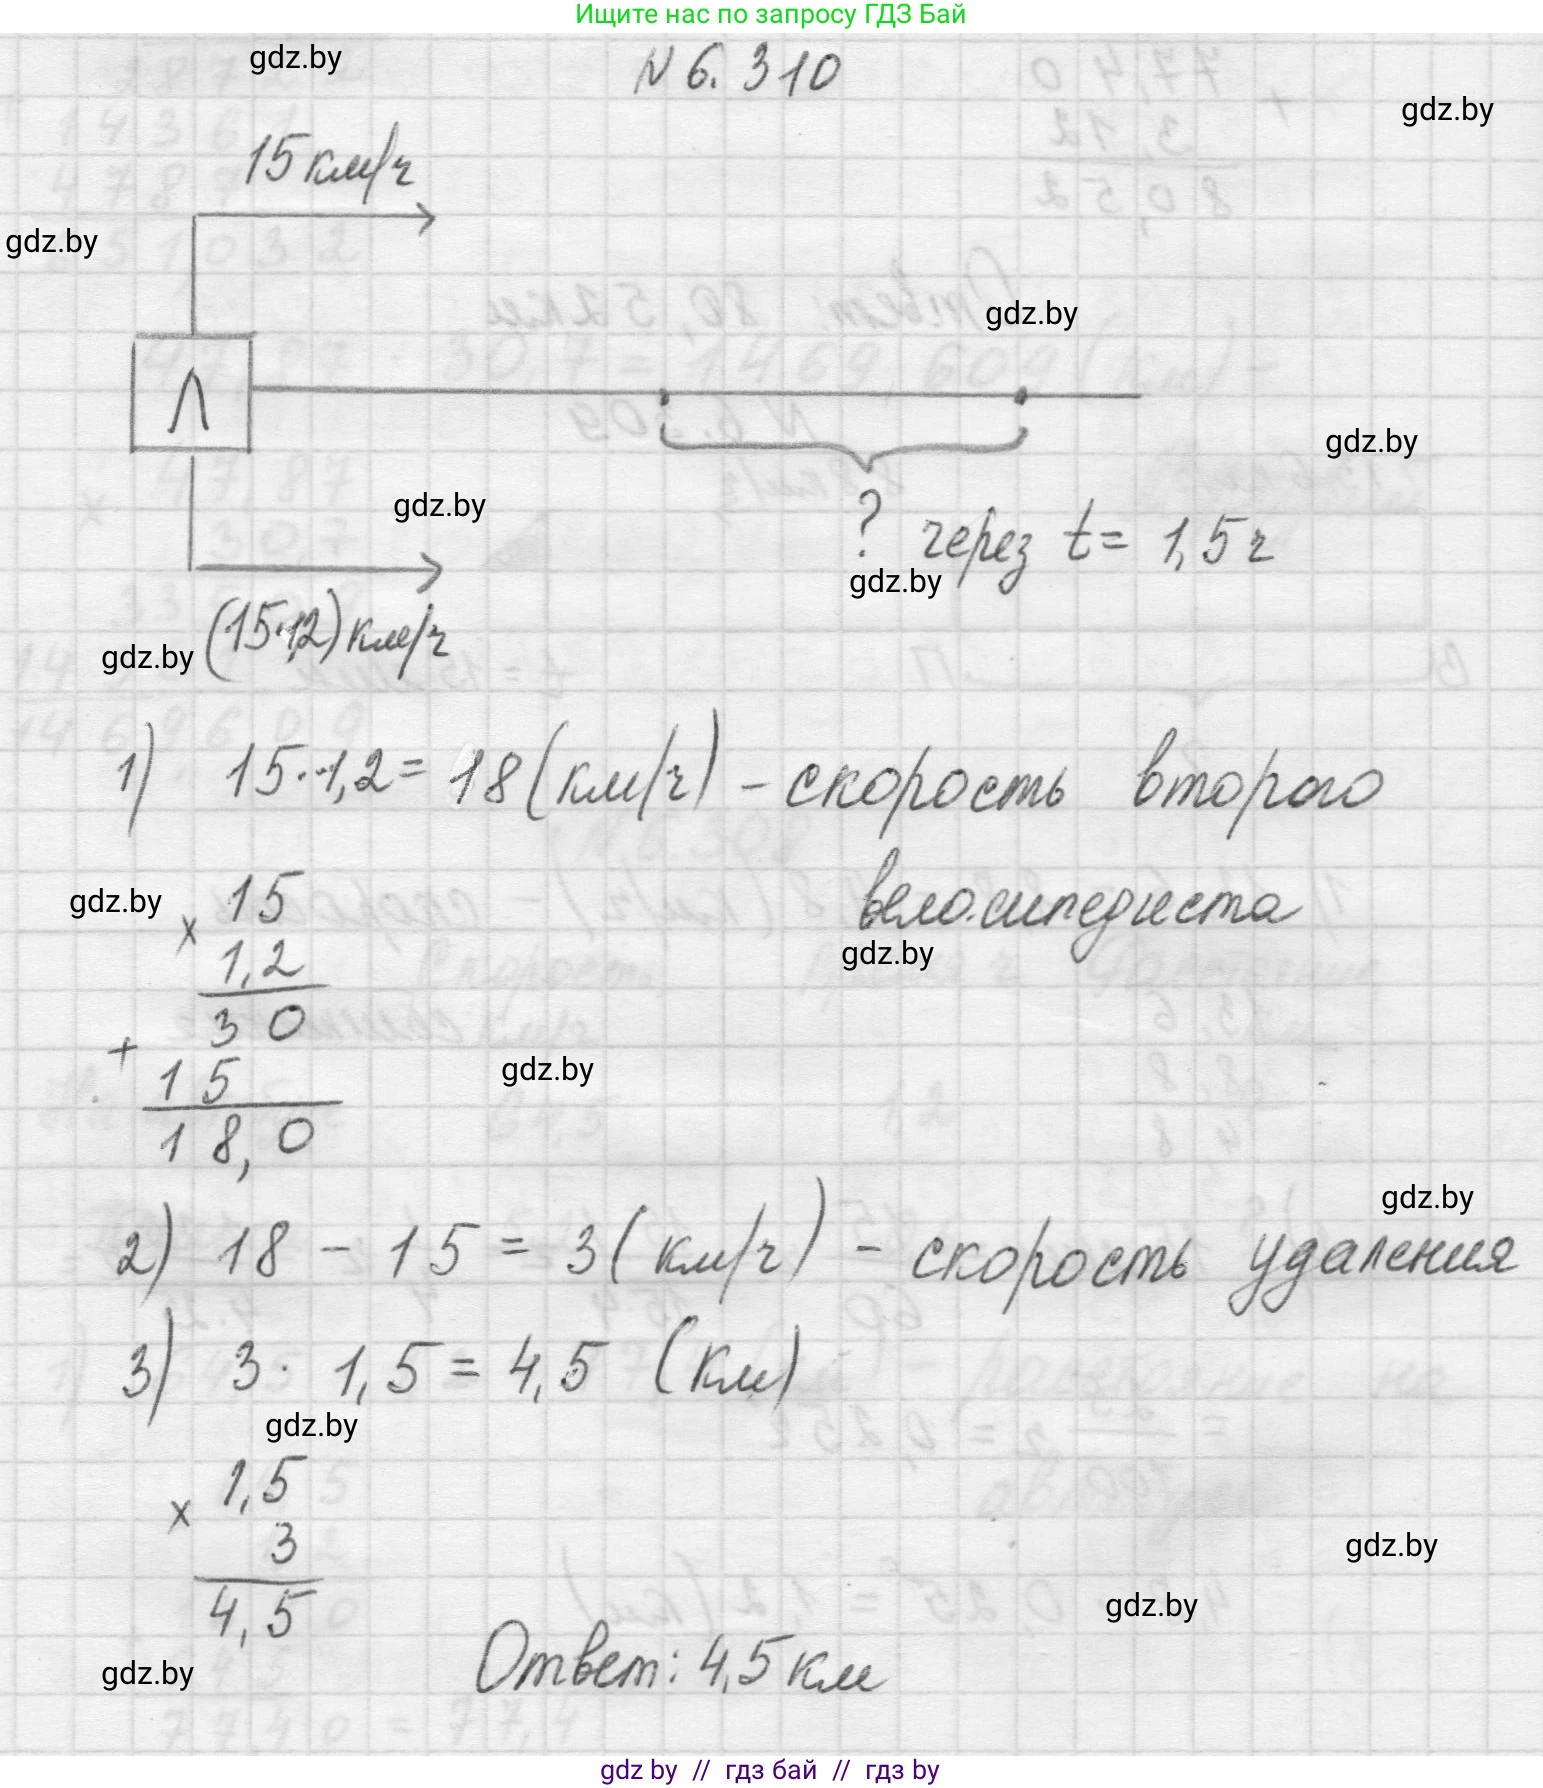 Ищите нас по запросу ГДЗ Бай
gdz.by
N 6. 310
gdz.by
15 км/ч
gdz.by
gdz.by
Л
gdz.by
gdz.by
? через t = 1,5 ч
gdz.by
(15·1,2) км/ч
gdz.by
1) 15·1,2 = 18 (км/ч) - скорость второго
велосипедиста
gdz.by
gdz.by
× 15
1,2
30
+
15
18,0
gdz.by
gdz.by
2) 18 - 15 = 3 (км/ч) - скорость удаления
3) 3 · 1,5 = 4,5 (км)
gdz.by
× 1,5
3
4,5
gdz.by
gdz.by
Ответ: 4,5 км
gdz.by
gdz by // гдз бай // гдз by